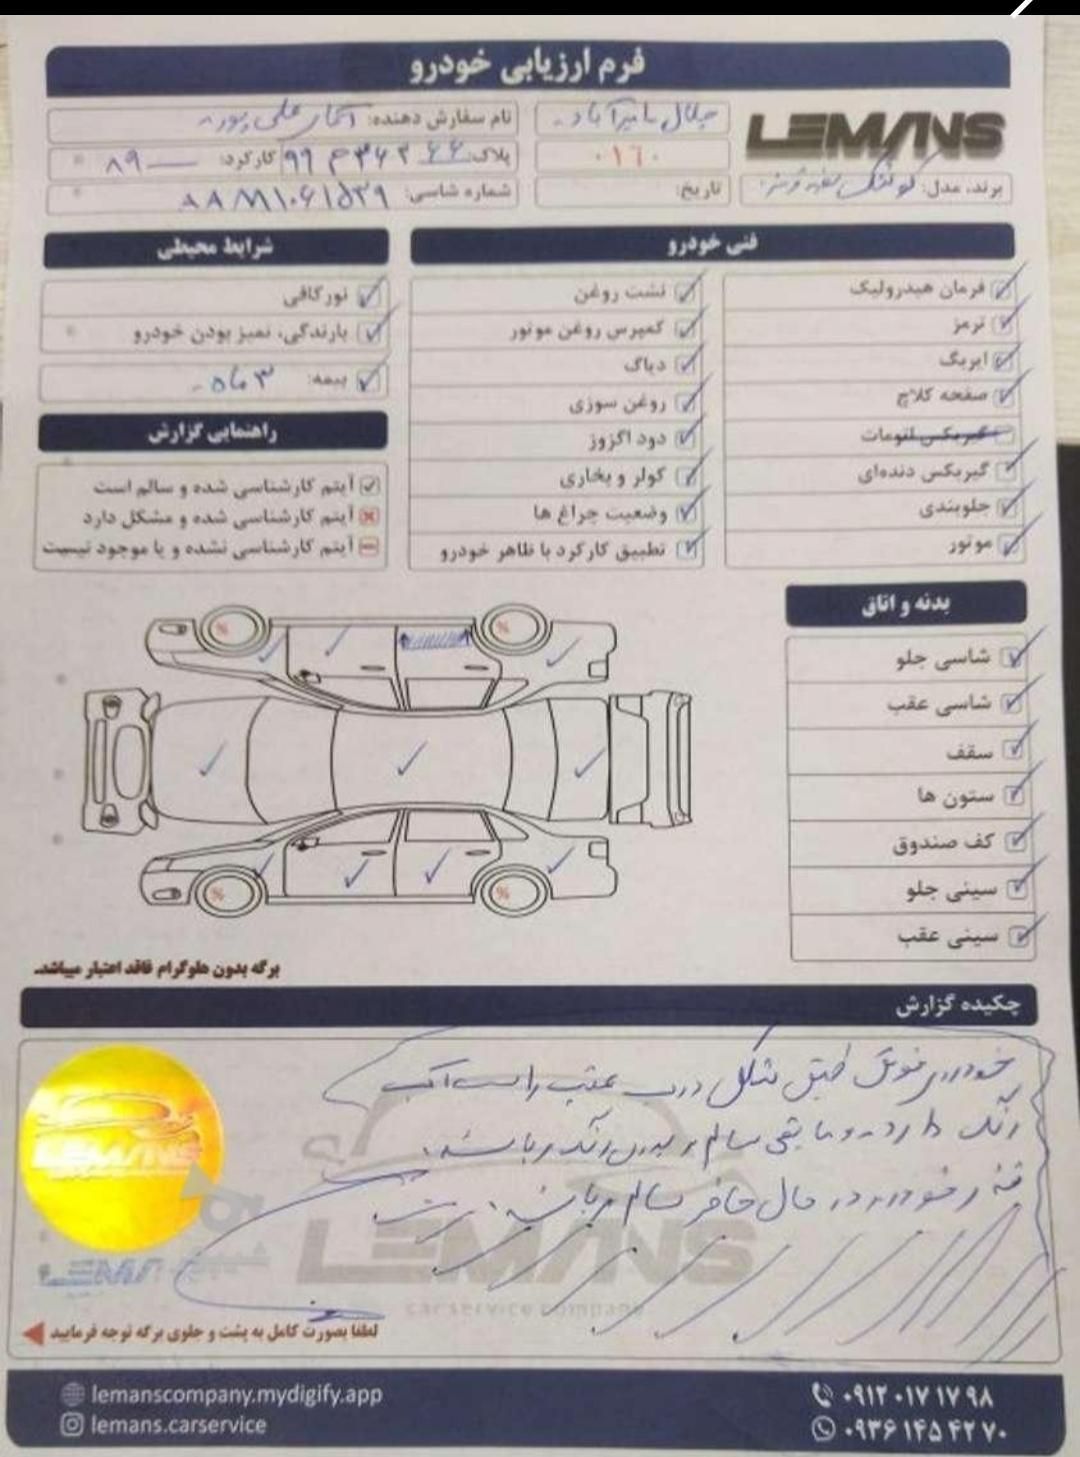 فرم ارزیابی خودرو
LEMANS
نام سفارش دهنده: علی پور
۰۱۶۰
پلاک: ۶۶ ۹۹
کارکرد: ۸۹
برند، مدل:
تاریخ:
شماره شاسی:
فنی خودرو
فرمان هیدرولیک
ترمز
ایربگ
صفحه کلاچ
گیربکس اتومات
گیربکس دنده‌ای
جلوبندی
موتور
نشت روغن
کمپرس روغن موتور
دیاگ
روغن سوزی
دود اگزوز
کولر و بخاری
وضعیت چراغ ها
تطبیق کارکرد با ظاهر خودرو
شرایط محیطی
نور کافی
بارندگی، تمیز بودن خودرو
بیمه: ۳ ماه
راهنمایی گزارش
آیتم کارشناسی شده و سالم است
آیتم کارشناسی شده و مشکل دارد
آیتم کارشناسی نشده و یا موجود نیست
بدنه و اتاق
شاسی جلو
شاسی عقب
سقف
ستون ها
کف صندوق
سینی جلو
سینی عقب
%
%
%
%
برگه بدون هلوگرام فاقد اعتبار میباشد.
چکیده گزارش
خودروی فوق طبق شکل درب عقب راست
رنگ دارد و مابقی سالم و بدون رنگ میباشد.
فنی خودرو در حال حاضر سالم میباشد.
LEMANS
car service company
لطفا بصورت کامل به پشت و جلوی برگه توجه فرمایید
lemanscompany.mydigify.app
lemans.carservice
۰۹۱۲ ۰۱۷ ۱۷ ۹۸
۰۹۳۶ ۱۴۵ ۴۲ ۷۰